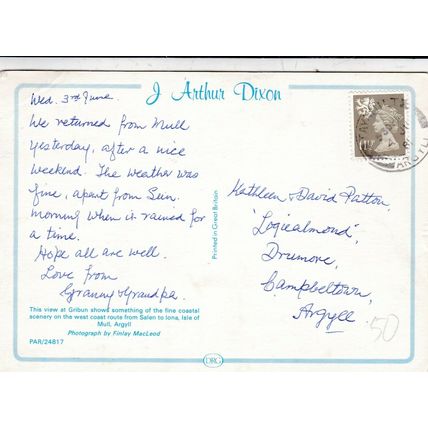 J Arthur Dixon
Wed. 3rd June.
We returned from Mull
yesterday, after a nice
weekend. The weather was
fine, apart from Sun.
morning when it rained for
a time.
Hope all are well.
Love from
Granny & Grandpa.
This view at Gribun shows something of the fine coastal
scenery on the west coast route from Salen to Iona, Isle of
Mull, Argyll
Photograph by Finlay MacLeod
PAR/24817
Printed in Great Britain
DRG
Kathleen & David Patton,
'Logiealmond',
Drumore,
Campbeltown,
Argyll.
50